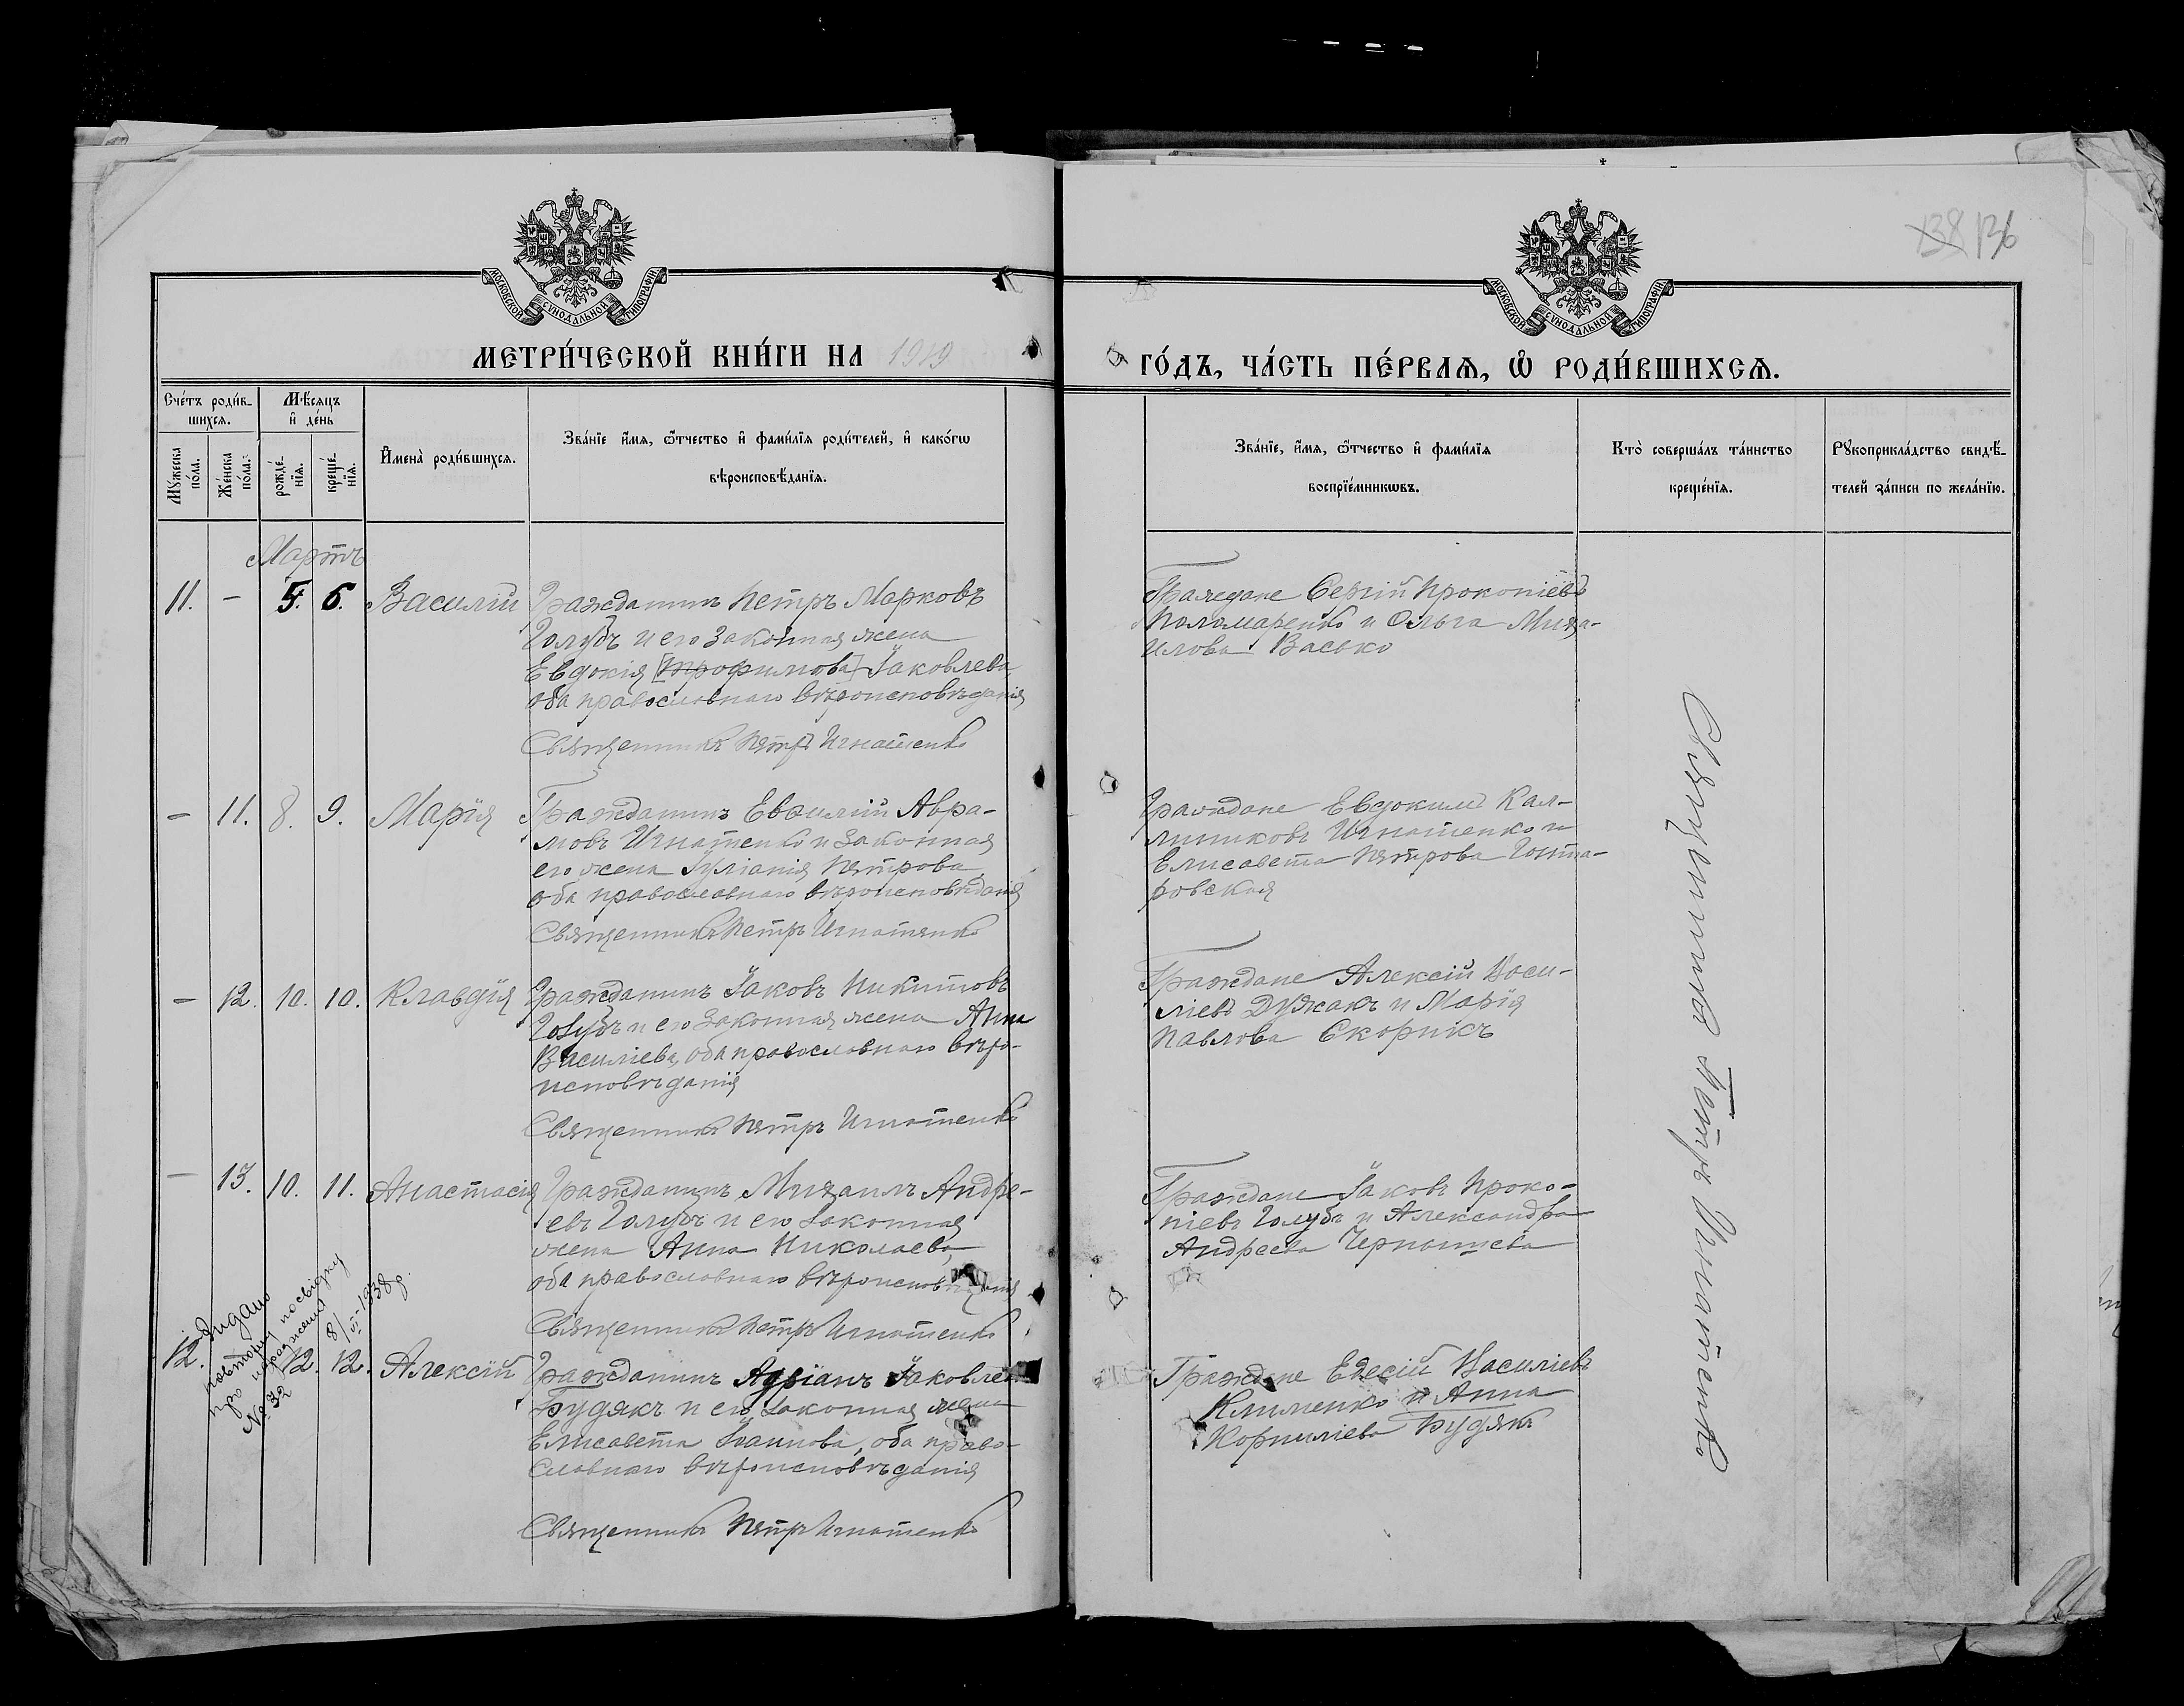 138 136
МОСКОВСКОЙ СУНОДАЛЬНОЙ ТИПОГРАФІИ
МОСКОВСКОЙ СУНОДАЛЬНОЙ ТИПОГРАФІИ
МЕТРИ́ЧЕСКОЙ КНИ́ГИ НА 1919
ГО́ДЪ, ЧА́СТЬ ПЕ́РВАѦ, Ѡ҆ РОДИ́ВШИХСѦ.
Сче́тъ роди́в-
шихсѧ.
Мꙋ́жеска
по́ла.
Же́нска
по́ла.
Мѣ́сѧцъ
и҆ де́нь
рожде́-
нїѧ.
креще́-
нїѧ.
И҆мена̀ роди́вшихсѧ.
Зва́нїе и҆́мѧ, ѻ҆́тчество и҆ фами́лїѧ роди́телей, и҆ како́гѡ
вѣроисповѣ́данїѧ.
Зва́нїе, и҆́мѧ, ѻ҆́тчество и҆ фами́лїѧ
воспрїе́мникѡвъ.
Кто̀ соверша́лъ та́инство
креще́нїѧ.
Рꙋкоприкла́дство свидѣ́-
телей за́писи по жела́нїю.
Мартъ
11. – 5. 6. Василій
Гражданинъ Петръ Марковъ
Голубъ и его законная жена
Евдокія [Трофимова] Іаковлева
оба православнаго вѣроисповѣданія
Священникъ Петръ Игнатенко
Граждане Сергій Прокопіевъ
Поломаренко и Ольга Миха-
илова Васько
– 11. 8. 9. Марія
Гражданинъ Евѳимій Авра-
мовъ Игнатенко и законная
его жена Іуліанія Петрова
оба православнаго вѣроисповѣданія
Священникъ Петръ Игнатенко
Граждане Евдокимъ Кал-
линиковъ Игнатенко и
Елисавета Петрова Гонта-
ровская
– 12. 10. 10. Клавдія
Гражданинъ Іаковъ Никитовъ
Голубъ и его законная жена Анна
Василіева, оба православнаго вѣро-
исповѣданія
Священникъ Петръ Игнатенко
Граждане Алексій Васи-
ліевъ Дужакъ и Марія
Павлова Скорикъ
– 13. 10. 11. Анастасія
Гражданинъ Михаилъ Андре-
евъ Голубъ и его законная
жена Анна Николаева,
оба православнаго вѣроисповѣданія
Священникъ Петръ Игнатенко
Граждане Іаковъ Проко-
піевъ Голубъ и Александра
Андреева Чернышева
Видано
повторну посвідку
про народження
№ 32 8/VI-1938 р.
12. 12. 12. Алексій
Гражданинъ Адріанъ Іаковлев
Будякъ и его законная жена
Елисавета Іоаннова, оба право-
славнаго вѣроисповѣданія
Священникъ Петръ Игнатенко
Граждане Василіевъ
Клименко и Анна
Корниліева Будякъ
Священникъ Петръ Игнатенко